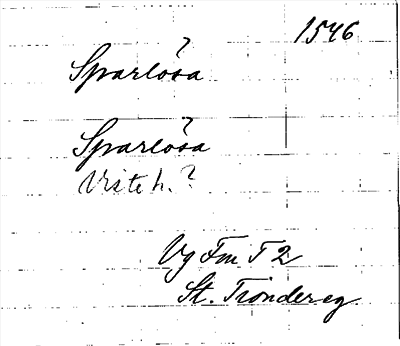 1546
Sparlösa ?
Sparlösa ?
Viste h. ?
Vg Fm T 2
St. Trondereg